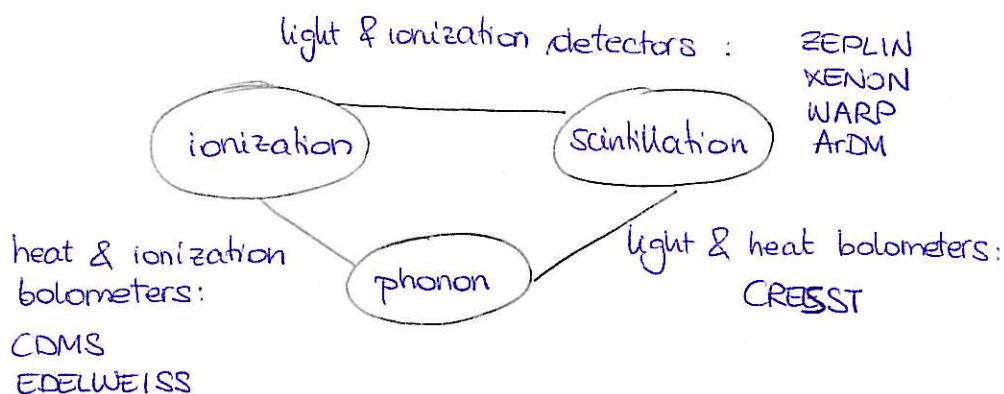 light & ionization detectors :
ZEPLIN
XENON
WARP
ArDM
ionization
scintillation
heat & ionization
bolometers:
CDMS
EDELWEISS
phonon
light & heat bolometers:
CRESST